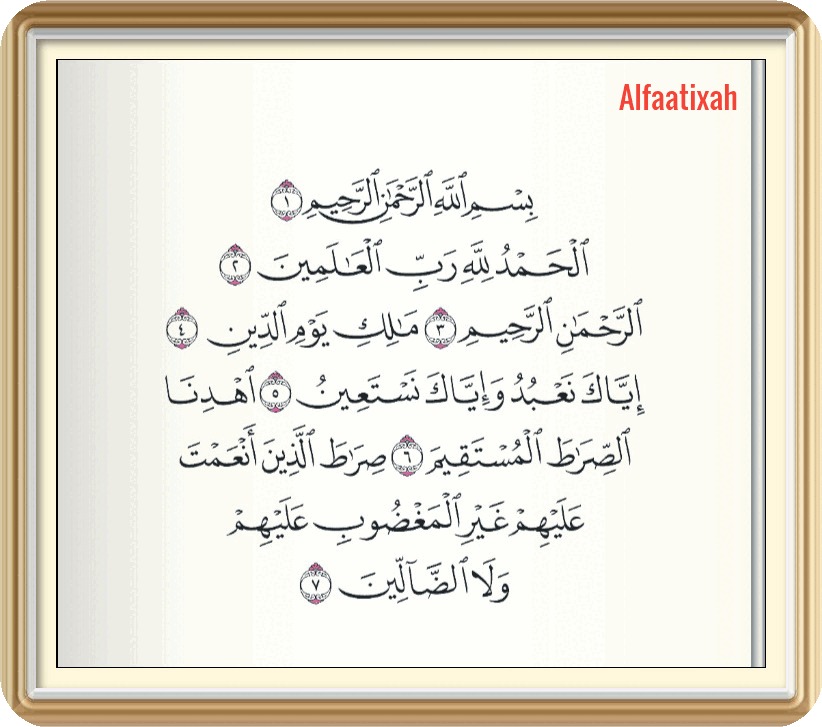 Alfaatixah
بِسْمِ ٱللَّهِ ٱلرَّحْمَٰنِ ٱلرَّحِيمِ ١
ٱلْحَمْدُ لِلَّهِ رَبِّ ٱلْعَٰلَمِينَ ٢
ٱلرَّحْمَٰنِ ٱلرَّحِيمِ ٣ مَٰلِكِ يَوْمِ ٱلدِّينِ ٤
إِيَّاكَ نَعْبُدُ وَإِيَّاكَ نَسْتَعِينُ ٥ ٱهْدِنَا
ٱلصِّرَٰطَ ٱلْمُسْتَقِيمَ ٦ صِرَٰطَ ٱلَّذِينَ أَنْعَمْتَ
عَلَيْهِمْ غَيْرِ ٱلْمَغْضُوبِ عَلَيْهِمْ
وَلَا ٱلضَّآلِّينَ ٧